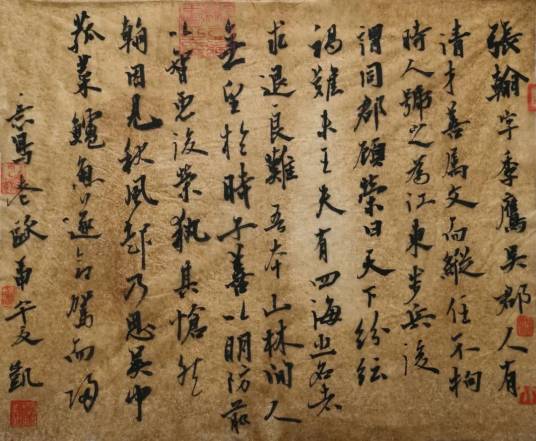 張翰字季鷹吳郡人有
清才善屬文而縱任不拘
時人號之為江東步兵後
謂同郡顧榮曰天下紛紜
禍難未已夫有四海之名者
求退良難吾本山林間人
無望於時子善以明防前
以智慮後榮執其愴然
翰因見秋風起乃思吳中
菰菜鱸魚遂命駕而歸
意寫老歐甲午夏凱